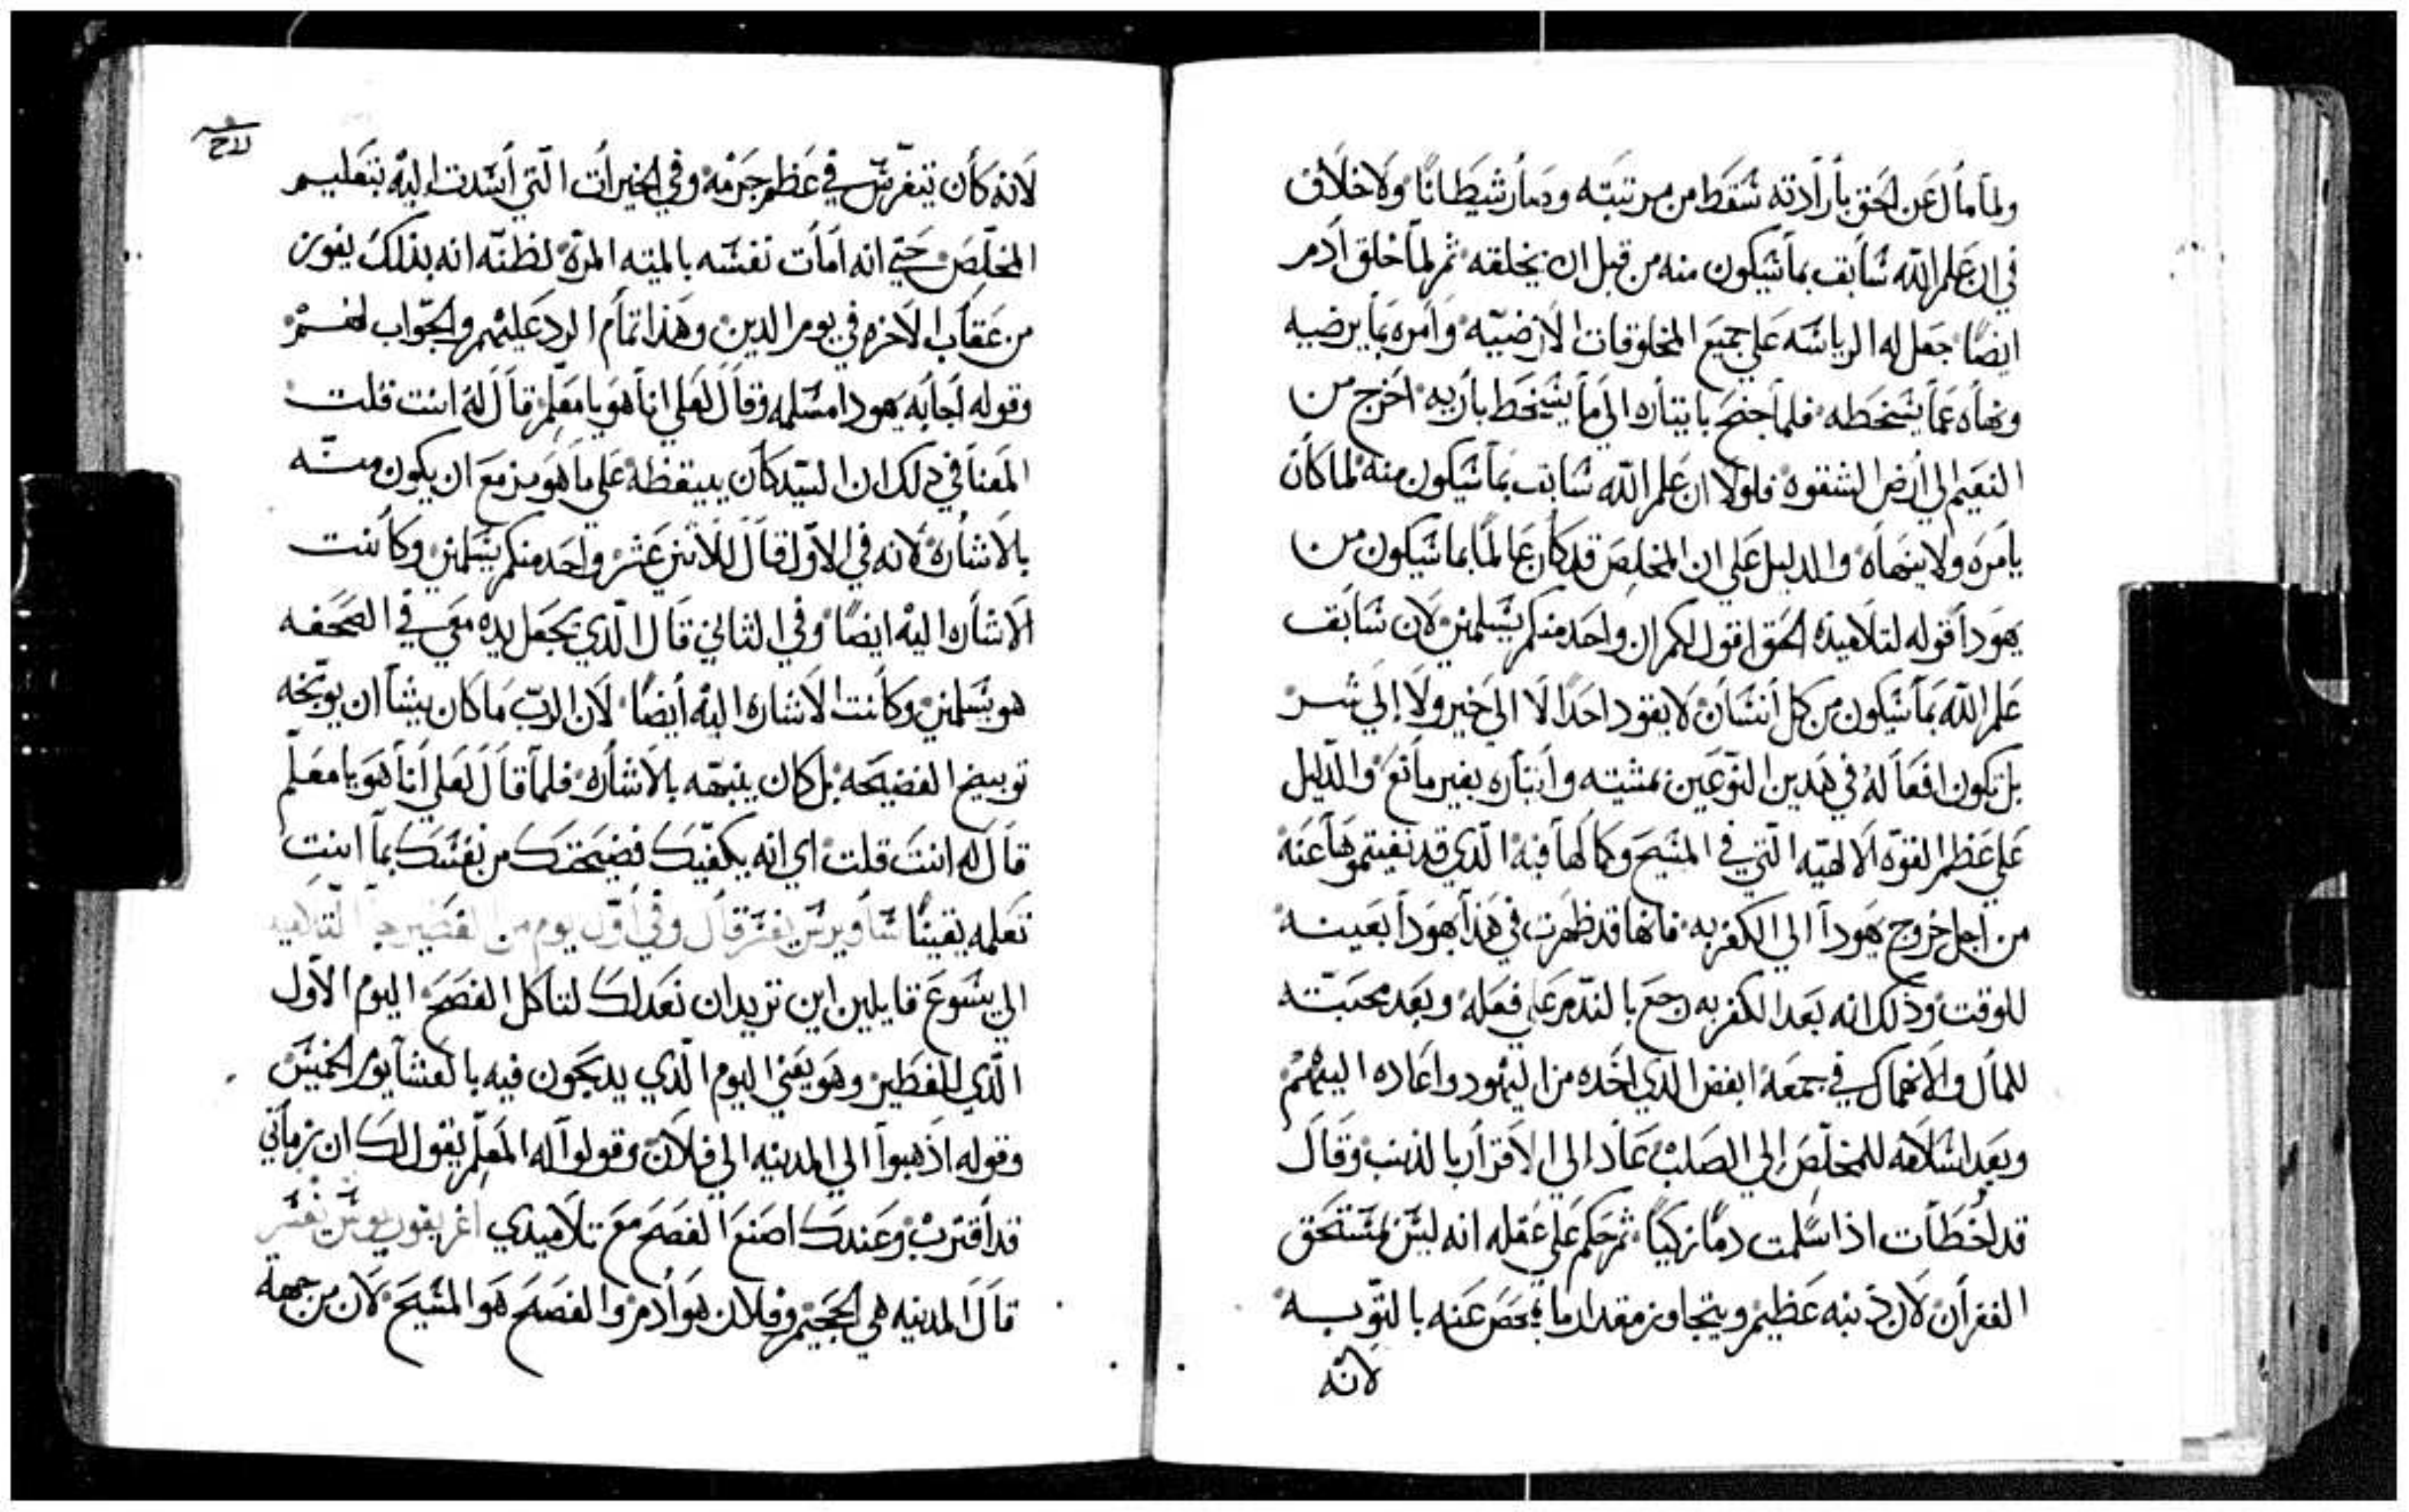 ولما مال عن الحق بارادته سقط من مرتبته وصار شيطانًا ولا خلاف
في ان علم الله سابق بما سيكون منه من قبل ان يخلقه ثم لما خلق ادم
ايضًا جعل له الرياسه علي جميع المخلوقات الارضيه وامره بما يرضيه
ونهاه عما يسخطه فلما جنح بايثاره الي ما يسخط باريه اخرج من
النعيم الي ارض الشقوه فلولا ان علم الله سابق بما سيكون منه لما كان
يامره ولا ينهاه والدليل علي ان المخلص قد كان عالمًا بما سيكون من
يهودا قوله لتلاميذه الحق اقول لكم ان واحد منكم يسلمني لان سابق
علم الله بما سيكون من كل انسان لا يقود احدًا لا الي خير ولا إلي شر
بل تكون افعاله في هدين النوعين بمشيته وايثاره بغير مانع والدليل
علي عظم القوه الالهيه التي في المسيح وكمالها فيه الدي قد نفيتموها عنه
من اجل خروج يهودا الي الكفر به فانها قد ظهرت في هذا يهودا بعينه
للوقت وذلك انه بعد الكفر به رجع بالندم علي فعله وبعد محبته
للمال والانهماك في جمعه ابغض الدي اخده من اليهود واعاده اليهم
وبعد اسلامه للمخلص إلي الصلب عاد الي الاقرار بالذنب وقال
قد اخطات اذ اسلمت دمًا زكيًا ثم حكم علي عقله انه ليس لمستحق
الغفران لان ذنبه عظيم ويتجاوز مقدار ما يمحص عنه بالتوبه
لانه
لانه كان يتفرس في عظم جرمه وفي الخيرات التي أسدت اليه بتعليم
المخلص حتي انه امات نفسه بالميته المرة لظنه انه بذلك يفوز
من عقاب الاخره في يوم الدين وهذا تمام الرد عليهم والجواب لهم
وقوله اجابه يهودا مسلمه وقال لعلي انا هو يا معلم قال له انت قلت
المعنا في دلك ان السيد كان ييقظه علي ما هو مزمع ان يكون منه
بالاشاره لانه في الاول قال للاثني عشر واحد منكم يسلمني وكانت
الاشاره اليه ايضًا وفي الثاني قال الذي يجعل يده معي في الصحفه
هو يسلمني وكانت الاشاره اليه أيضًا لان الرب ما كان يشا ان يوبخه
توبيخ الفضيحه بل كان ينبهه بالاشاره فلما قال لعلي أنا هو يا معلم
قال له انت قلت اي انه يكفيك فضيحتك من نفسك بما انت
تعلمه يقينًا ساويرس يفسر قال وفي أول يوم من الفطير جا التلاميد
الي يسوع قايلين اين تريد ان نعد لك لتاكل الفصح اليوم الاول
الذي للفطير وهو يعني اليوم الذي يدبحون فيه بالعشا يوم الخميس
وقوله اذهبوا الي المدينه الي فلان وقولوا له المعلم يقول لك ان زماني
قد اقترب وعندك اصنع الفصح مع تلاميذي اغريغوريوس يفسر
قال المدينه هي الجحيم وفلان هو أدم والفصح هو المسيح لان من جهة